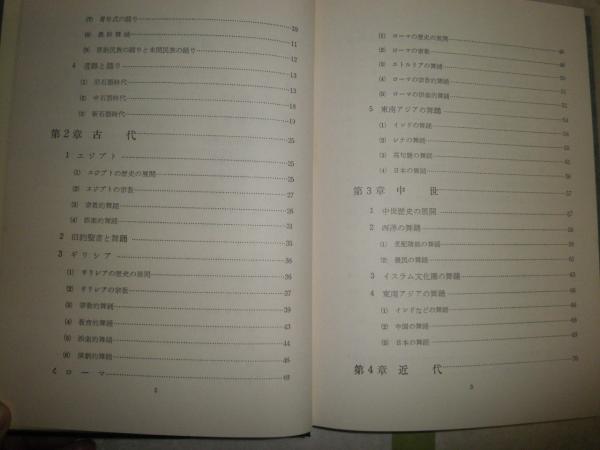 (7) 青年式の踊り 10
(8) 農耕舞踊 11
(9) 原始民族の踊りと未開民族の踊り 12
4 遺跡と踊り 13
(1) 旧石器時代 13
(2) 中石器時代 18
(3) 新石器時代 19
第2章 古代 25
1 エジプト 25
(1) エジプトの歴史の展開 25
(2) エジプトの宗教 27
(3) 宗教的舞踊
(4) 娯楽的舞踊 31
2 旧約聖書と舞踊 35
3 ギリシア 36
(1) ギリシアの歴史の展開 36
(2) ギリシアの宗教 37
(3) 宗教的舞踊 39
(4) 教育的舞踊 43
(5) 娯楽的舞踊 44
(6) 演劇的舞踊 46
4 ローマ 48
2
(1) ローマの歴史の展開
(2) ローマの宗教
(3) エトルリアの舞踊
(4) ローマの宗教的舞踊
(5) ローマの娯楽的舞踊
5 東南アジアの舞踊 54
(1) インドの舞踊 54
(2) シナの舞踊
(3) 高句麗の舞踊
(4) 日本の舞踊
第3章 中世 57
1 中世歴史の展開 57
2 西洋の舞踊
(1) 支配階級の舞踊
(2) 農民の舞踊
3 イスラム文化圏の舞踊
4 東南アジアの舞踊
(1) インドなどの舞踊
(2) 中国の舞踊
(3) 日本の舞踊
第4章 近代
3